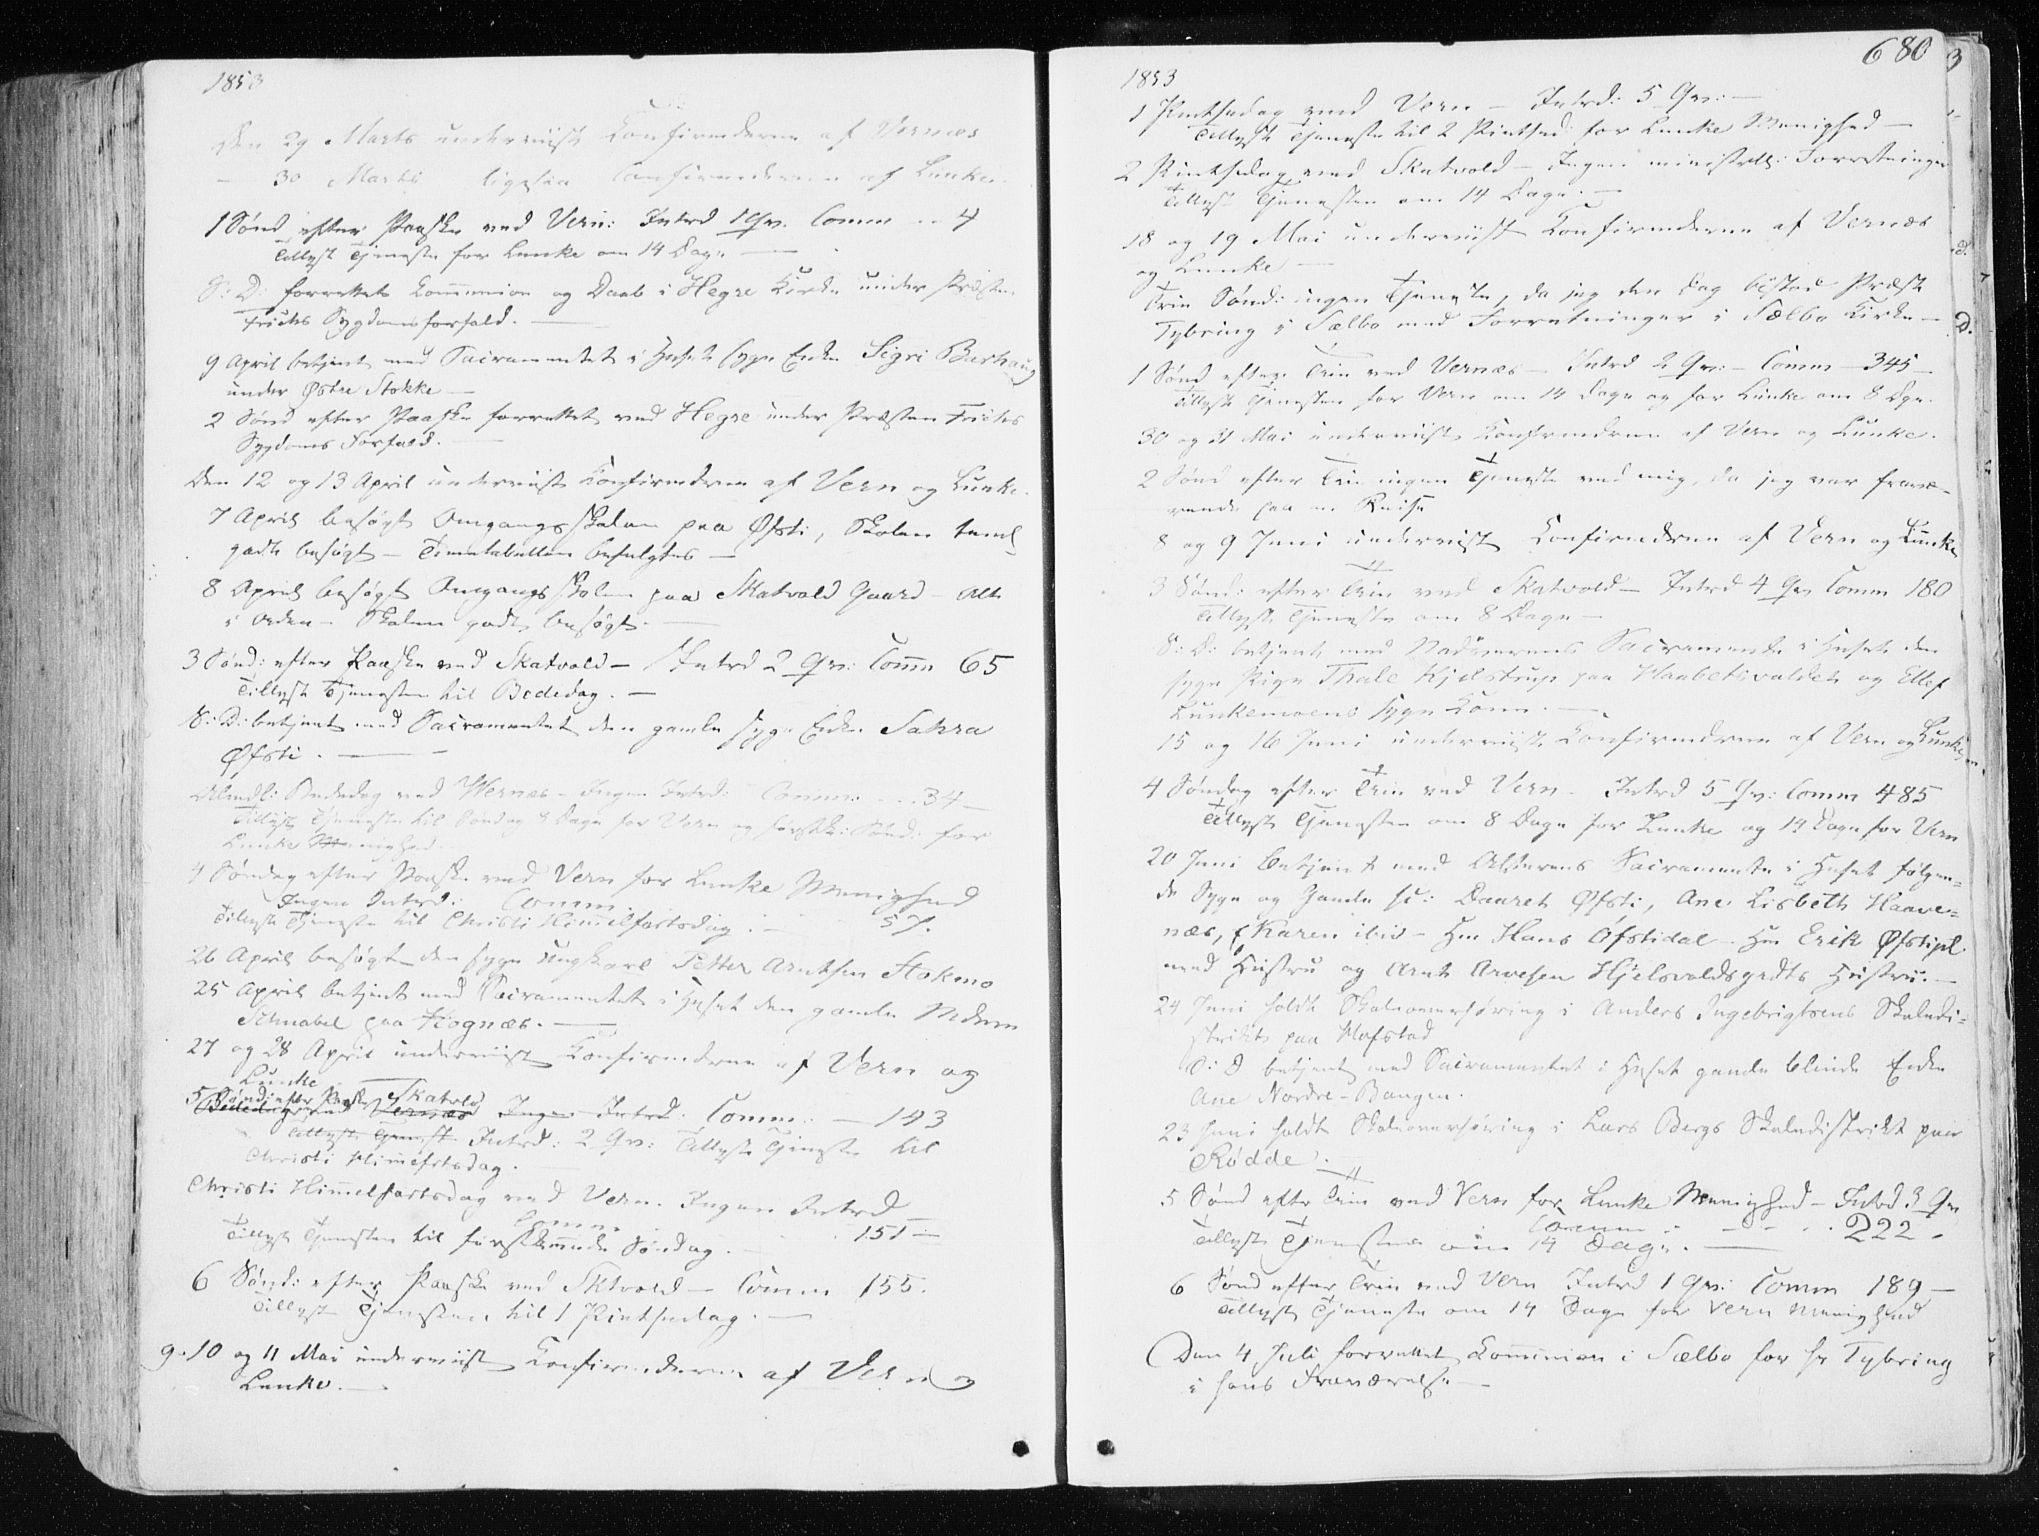 1853
Den 29 Marts underviist Confirmderne af Vernæs
— 30 Marts ligesaa Confirmderne af Lunke.
1 Sønd efter Paaske ved Vern: Introd 1 Qv. Comm .. 4
Tillyst Tjeneste for Lunke om 14 Dage —
S: D: forrettet Communion og Daab i Hegre Kirke under Præsten
Friches Sygdomsforfald. —
9 April betjent med Sacramentet i Huset syge Enke Sigri Barhaug
under Østre Stokke —
2 Sønd efter Paaske forrettet ved Hegre under Præsten Friches
Sygdoms Forfald. —
Den 12 og 13 April underviist Confirmderne af Vern og Lunke.
7 April besøgt Omgangsskolen paa Øfsti, Skolen temel
godt besøgt — Timetabellen befulgtes —
8 April besøgt Omgangsskolen paa Skatvold Gaard — Alt
i Orden — Skolen godt besøgt. —
3 Sønd: efter Paaske ved Skatvold — Introd 2 Qv: Comm 65
Tillyst Tjenesten til Bededag. —
S: D: betjent med Sacramentet den gamle syge Enke Sahra
Øfsti. —
Almdl: Bededag ved Wernæs — Ingen Introd: Comm: ... 34 —
Tillyst Tjeneste til Søndag 8 Dage for Vern og førstk: Sønd: for
Lunke Menighed.
4 Søndag efter Paaske ved Vern for Lunke Menighed
Ingen Introd: Comm
Tillyst Tjeneste til Christi Himmelfartsdag. — 57.
26 April besøgt den syge Ungkarl Petter Arntsen Stokmo
25 April betjent med Sacramentet i Huset den gamle Mdme
Schnabel paa Hognæs. —
27 og 28 April underviist Confirmderne af Vern og
Lunke —
5 Sønd: efter Paaske Skatvold
Bededag ved Vernæs Ingen Introd. Comm: — 143
Tillyst Tjenest Introd: 2 Qv: Tillyst Tjeneste til
Christi Himelfrtsdag.
Christi Himmelfartsdag ved Vern. Ingen Introd —
Comm . 151 —
Tillyst Tjenesten til førstkommende Søndag. —
6 Sønd: efter Paaske ved Sktvold — Comm 155.
Tillyst Tjenesten til 1 Pintsedag. —
9. 10 og 11 Mai underviist Confirmderne af Vern og
Lunke. —
680
1853
1 Pintsedag ved Vern — Introd: 5 Qv: —
Tillyst Tjeneste til 2 Pintsed: for Lunke Menighed —
2 Pintsedag ved Skatvold — Ingen ministrll: Forretninger
Tillyst Tjenesten om 14 Dage. —
18 og 19 Mai underviist Confirmderne af Vernæs
og Lunke —
Trin Sønd: ingen Tjeneste, da jeg den Dag bistod Præst
Tybring i Sælbo med Forretninger i Sælbo Kirke —
1 Sønd efter Trin ved Vernæs — Introd 2 Qv: — Comm — 345 —
Tillyst Tjenesten for Vern om 14 Dage og for Lunke om 8 Dge.
30 og 31 Mai underviist Confirmdrne af Vern og Lunke.
2 Sønd efter Trin ingen Tjeneste ved mig, da jeg var fravæ-
rende paa en Reise
8 og 9 Juni underviist Confirmdrne af Vern og Lunke
3 Sønd: efter Trin ved Skatvold — Introd 4 Qv Comm 180
Tillyst Tjeneste om 8 Dage —
S: D: betjent med Nadverens Sacramente i Huset den
syge Pige Thale Kjelstrup paa Haabetsvaldet og Ellef
Lunkemoens syge Kone. —
15 og 16 Juni underviist Confirmdrne af Vern og Lunke
4 Søndag efter Trin ved Vern. Introd 5 Qv: Comm 485
Tillyst Tjenesten om 8 Dage for Lunke og 14 Dage for Vern
20 Juni betjent med Alterens Sacramente i Huset følgen-
de Syge og Gamle sc: Daaret Øfsti, Ane Lisbeth Haave-
næs, Karen ibid — Hr Hans Øfstidal — Hr Erik Øfstipl
med Hustru og Arnt Arvesen Hjelsvoldsgrdts Hustru. —
24 Juni holdt Skoleoverhøring i Anders Ingebrigtsens Skoledi-
strikt paa Hofstad
S: D betjent med Sacramentet i Huset gamle blinde Enke
Ane Nordre-Bangen.
23 Juni holdt Skoleoverhøring i Lars Bergs Skoledistrikt paa
Rødde. —
5 Sønd efter Trin ved Vern for Lunke Menighed — Introd 3 Qv
Comm . — — .. 222.
Tillyst Tjenesten om 14 Dage. —
6 Sønd efter Trin ved Vern Introd 1 Qv: Comm 189 —
Tillyst Tjeneste om 14 Dage for Vern Menighed
Den 4 Juli forrettet Communion i Sælbo for Hr Tybring
i hans Fraværelse —